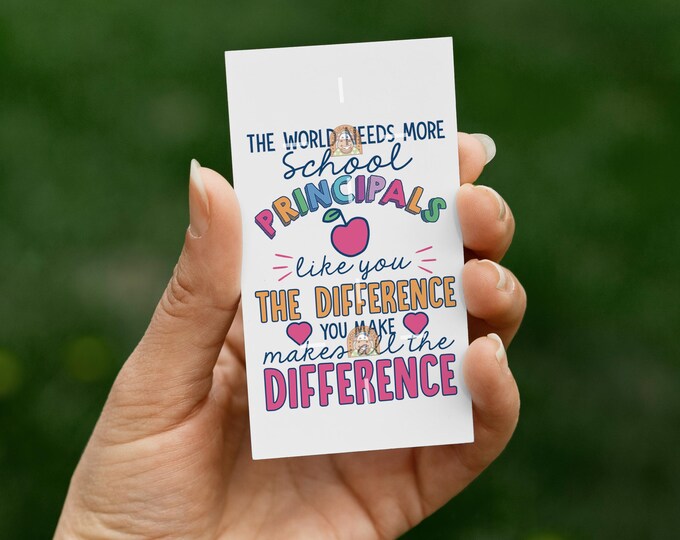 THE WORLD NEEDS MORE
School
PRINCIPALS
like you
THE DIFFERENCE
YOU MAKE
makes all the
DIFFERENCE